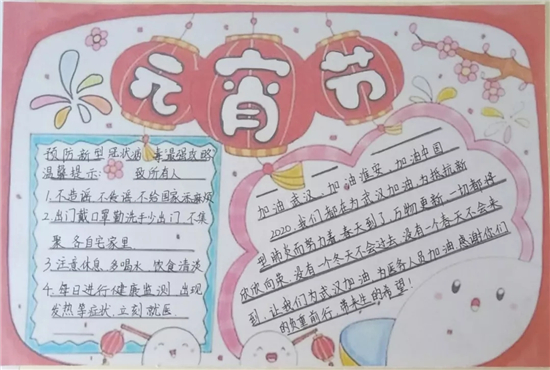 元宵节
预防新型冠状病毒最强攻略
温馨提示: 致所有人
1.不恐谣 不传谣 不给国家添麻烦
2.出门戴口罩勤洗手少出门 不集
聚 各自宅家里
3.注意休息,多喝水,饮食清淡
4.每日进行健康监测 出现
发热等症状,立刻就医
加油武汉,加油淮安,加油中国
2020,我们都在为武汉加油,为抵抗新
型肺炎而努力着,春天到了,万物更新,一切都将
欣欣向荣,没有一个冬天不会过去,没有一个春天不会来
到,让我们为武汉加油,为医务人员加油,感谢你们
的负重前行,带来生的希望!